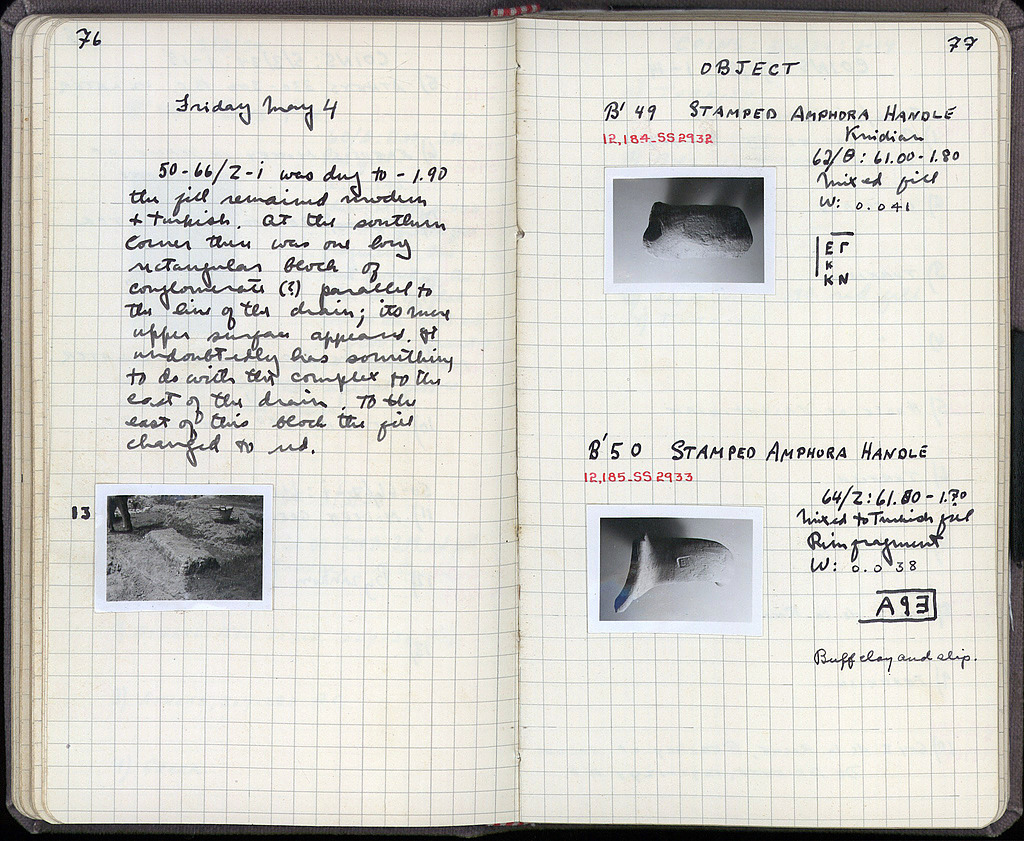 76
Friday May 4
50-66/Z-i was dug to -1.90
the fill remained modern
+ Turkish. At the southern
corner there was one long
rectangular block of
conglomerate (?) parallel to
the line of the drain; its mere
upper surface appears. It
undoubtedly has something
to do with the complex to the
east of the drain. To the
east of this block the fill
changed to red.
13
77
OBJECT
B'49 STAMPED AMPHORA HANDLE
12,184-SS 2932
Knidian
62/Θ: 61.00-1.80
Mixed fill
W: 0.041
ΕΓ
Κ
ΚΝ
B'50 STAMPED AMPHORA HANDLE
12,185-SS 2933
64/Z: 61.80-1.90
Mixed to Turkish fill
Rim fragment
W: 0.038
Buff clay and slip.